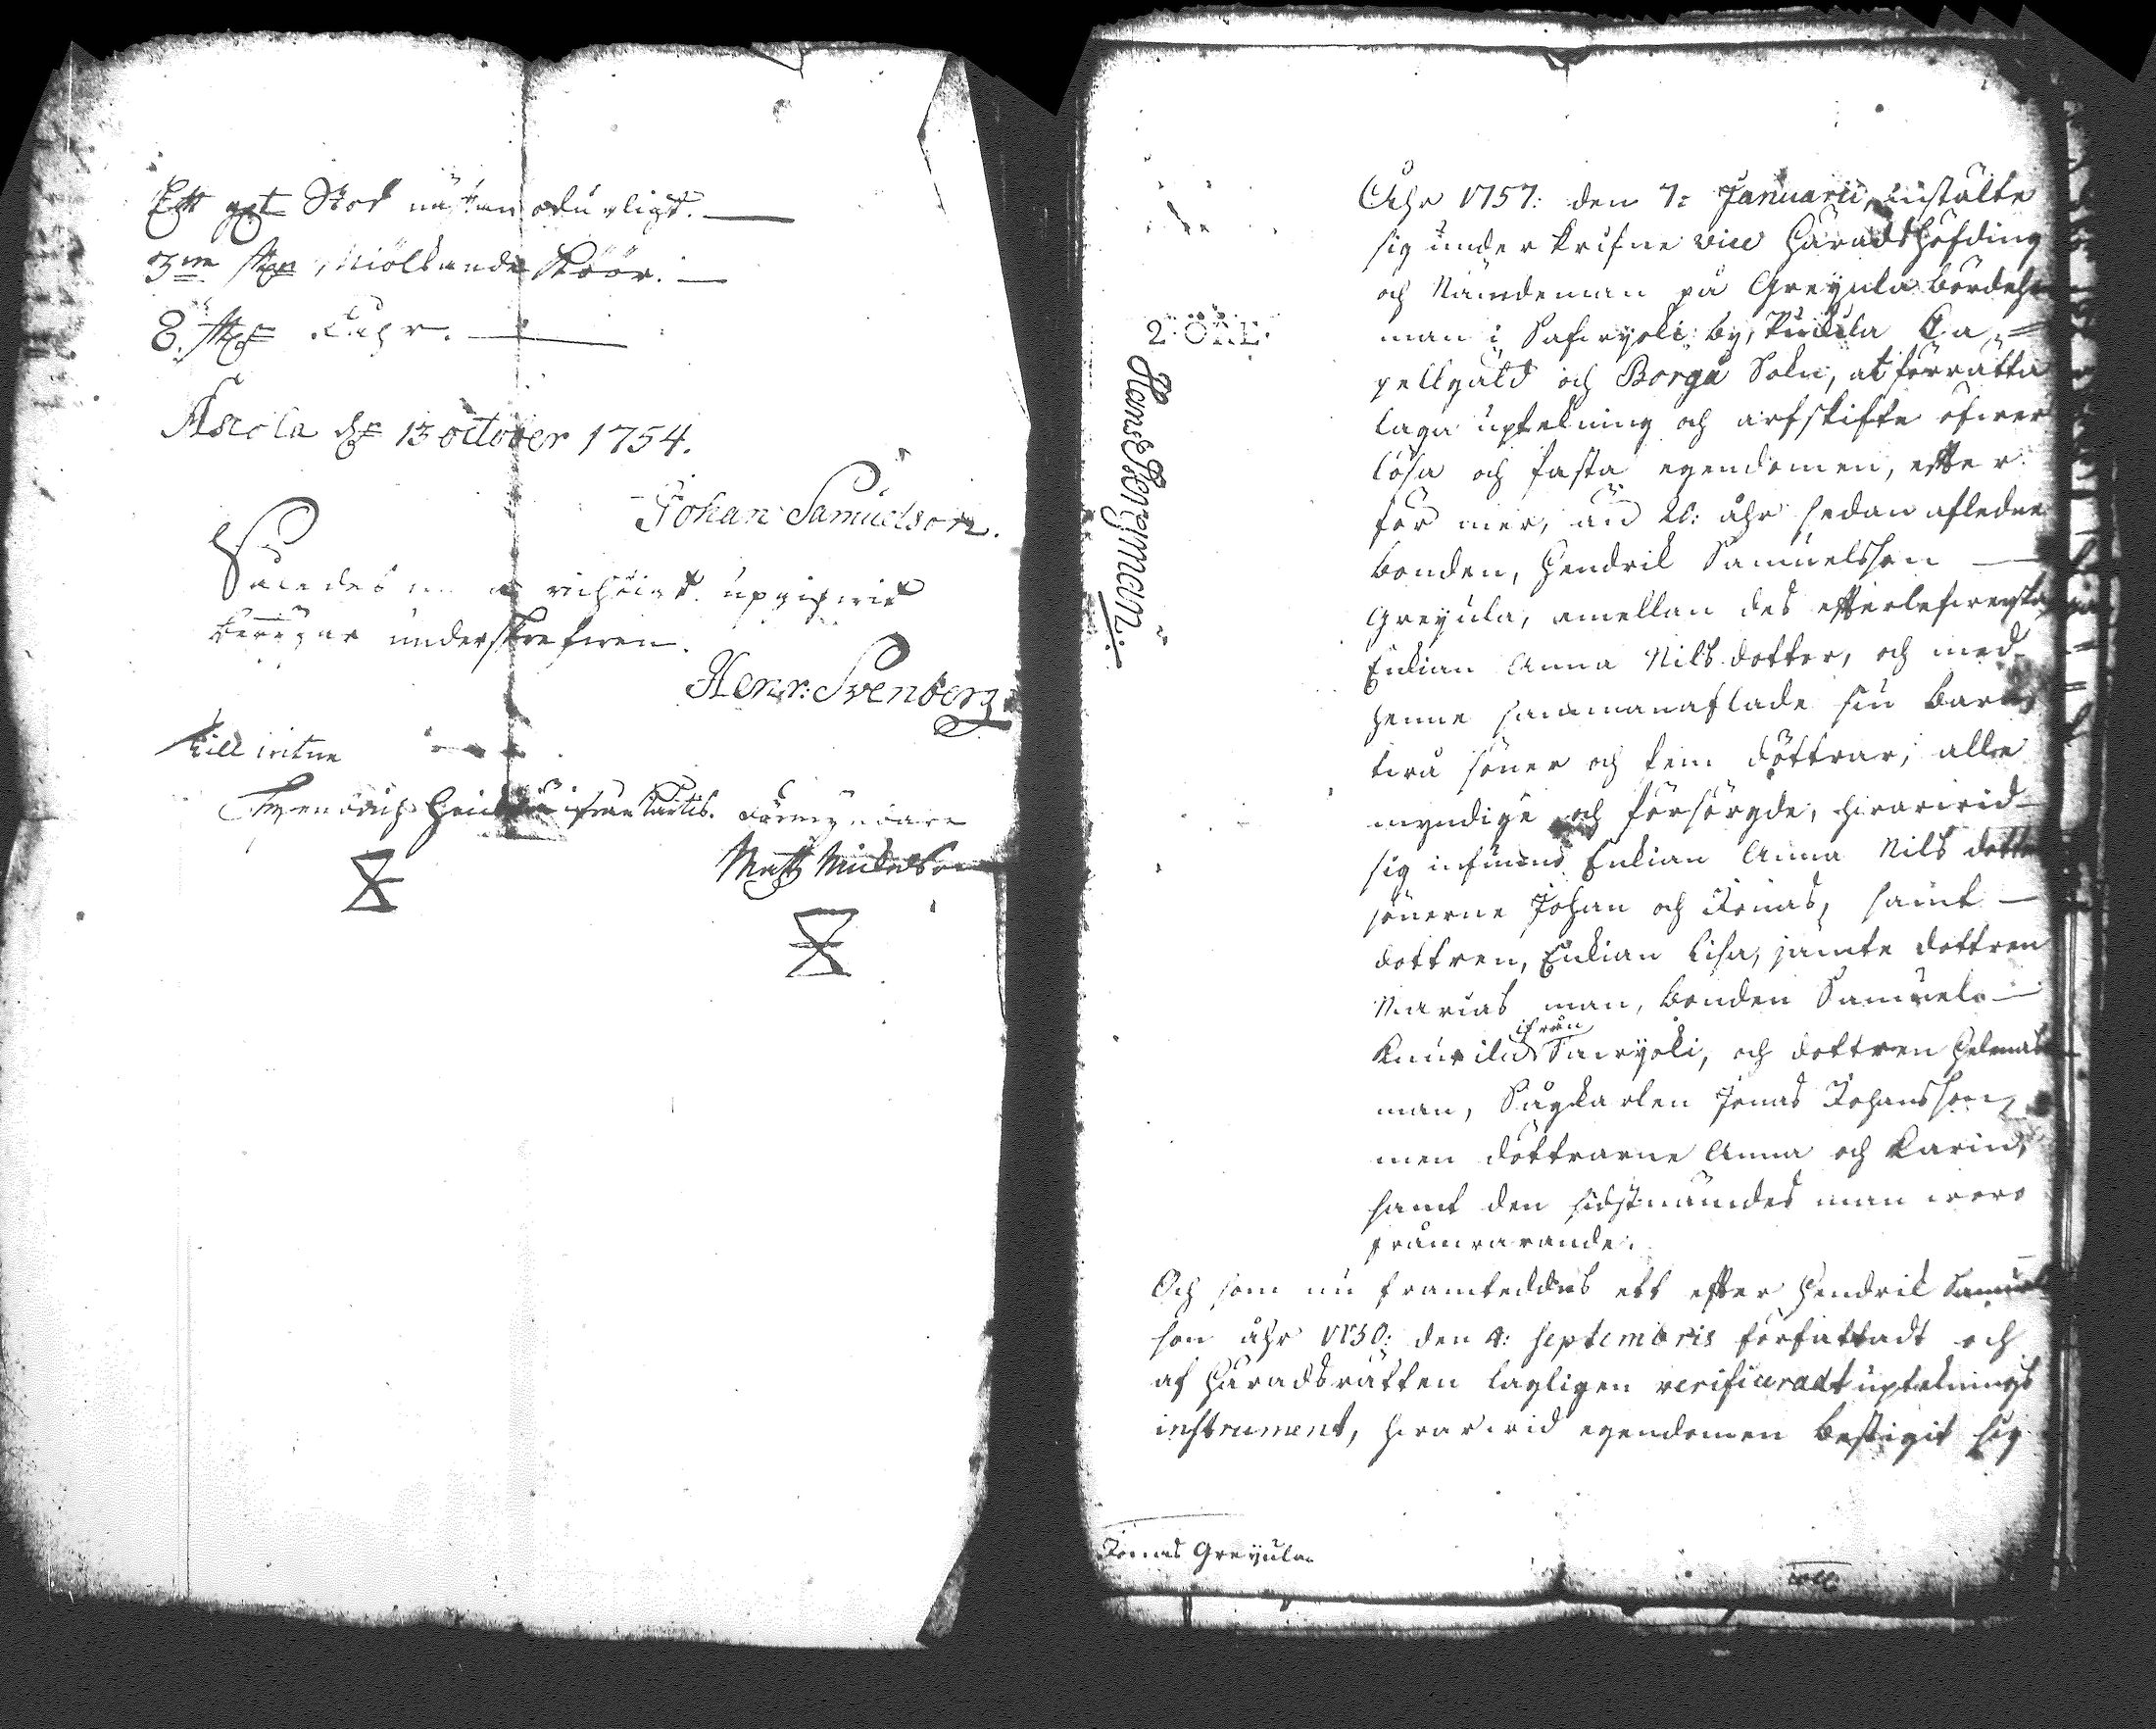 Ett gt Stod nästan oduglig.
3ne st Miölkande Koor.
8. st Fåhr.
Ascola d 13 october 1754.
Johan Samuelson.
Således
underskrefwen.
Henr: Svenberg
till witne
från
Förmyndare
Matts Mickelson
2 ÖRE.
Hans Bergman
Åhr 1757: den 7: Januarii, instälte
sig underskrifne vice Häradshöfding
och Nämdeman på Greyula bonde
man i Safwijoki by, Puckila Ca
pellgäld och Borgå Sokn, at förrätta
laga uptekning och arfskifte öfwer
lösa och fasta egendomen, efter
för mer, än åhr sedan afledne
bonden, Hendrik Samuelsson
Greyula, emellan des efterlefwerska
Enkian Anna Nils dotter, och med
henne sammanaflade siu barn,
twå söner och fem döttrar, alla
myndige och försörgde, hwarwid
sig infunno Enkian Anna Nils dotter
sönerne Johan och Jonas, samt
dottren, Enkian Lisa, jämte dottren
Marias man, bonden Samuel
Knutila ifrån Sawijoki, och dottren Helenas
man, Sågkarlen Jonas Johansson,
men döttrarne Anna och Karin,
samt den sidstnämndes man woro
frånwarande.
Och som nu framteddes ett efter Hendrik Samuels
son åhr 1730: den 4: Septembris författadt och
af Häradsrätten lagligen verificeradt uptecknings
instrument, hwarwid egendomen bestigit sig
Jonas Greyula